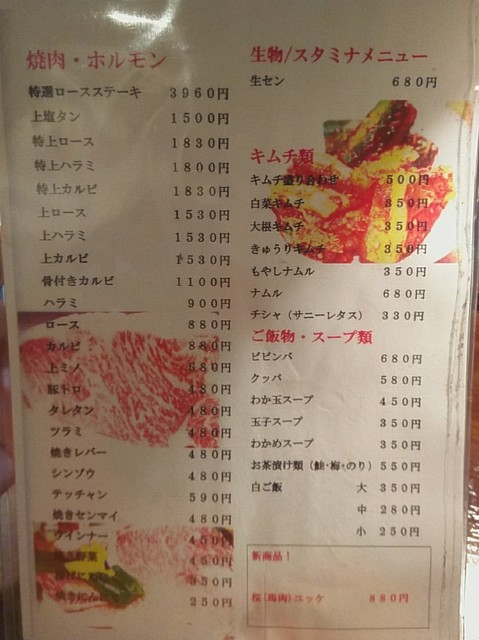 焼肉・ホルモン
特選ロースステーキ 3960円
上塩タン 1500円
特上ロース 1830円
特上ハラミ 1800円
特上カルビ 1830円
上ロース 1530円
上ハラミ 1530円
上カルビ 1530円
骨付きカルビ 1100円
ハラミ 900円
ロース 880円
カルビ 880円
上ミノ 680円
豚トロ 480円
タレタン 480円
ツラミ 480円
焼きレバー 480円
シンゾウ 480円
テッチャン 590円
焼きセンマイ 480円
ウインナー 450円
焼き野菜 450円
350円
250円
生物/スタミナメニュー
生セン 680円
キムチ類
キムチ盛り合わせ 500円
白菜キムチ 350円
大根キムチ 350円
きゅうりキムチ 350円
もやしナムル 350円
ナムル 680円
チシャ（サニーレタス） 330円
ご飯物・スープ類
ビビンバ 680円
クッパ 580円
わか玉スープ 450円
玉子スープ 350円
わかめスープ 350円
お茶漬け類（鮭・梅・のり） 550円
白ご飯 大 350円
中 280円
小 250円
新商品！
桜(馬肉)ユッケ 880円